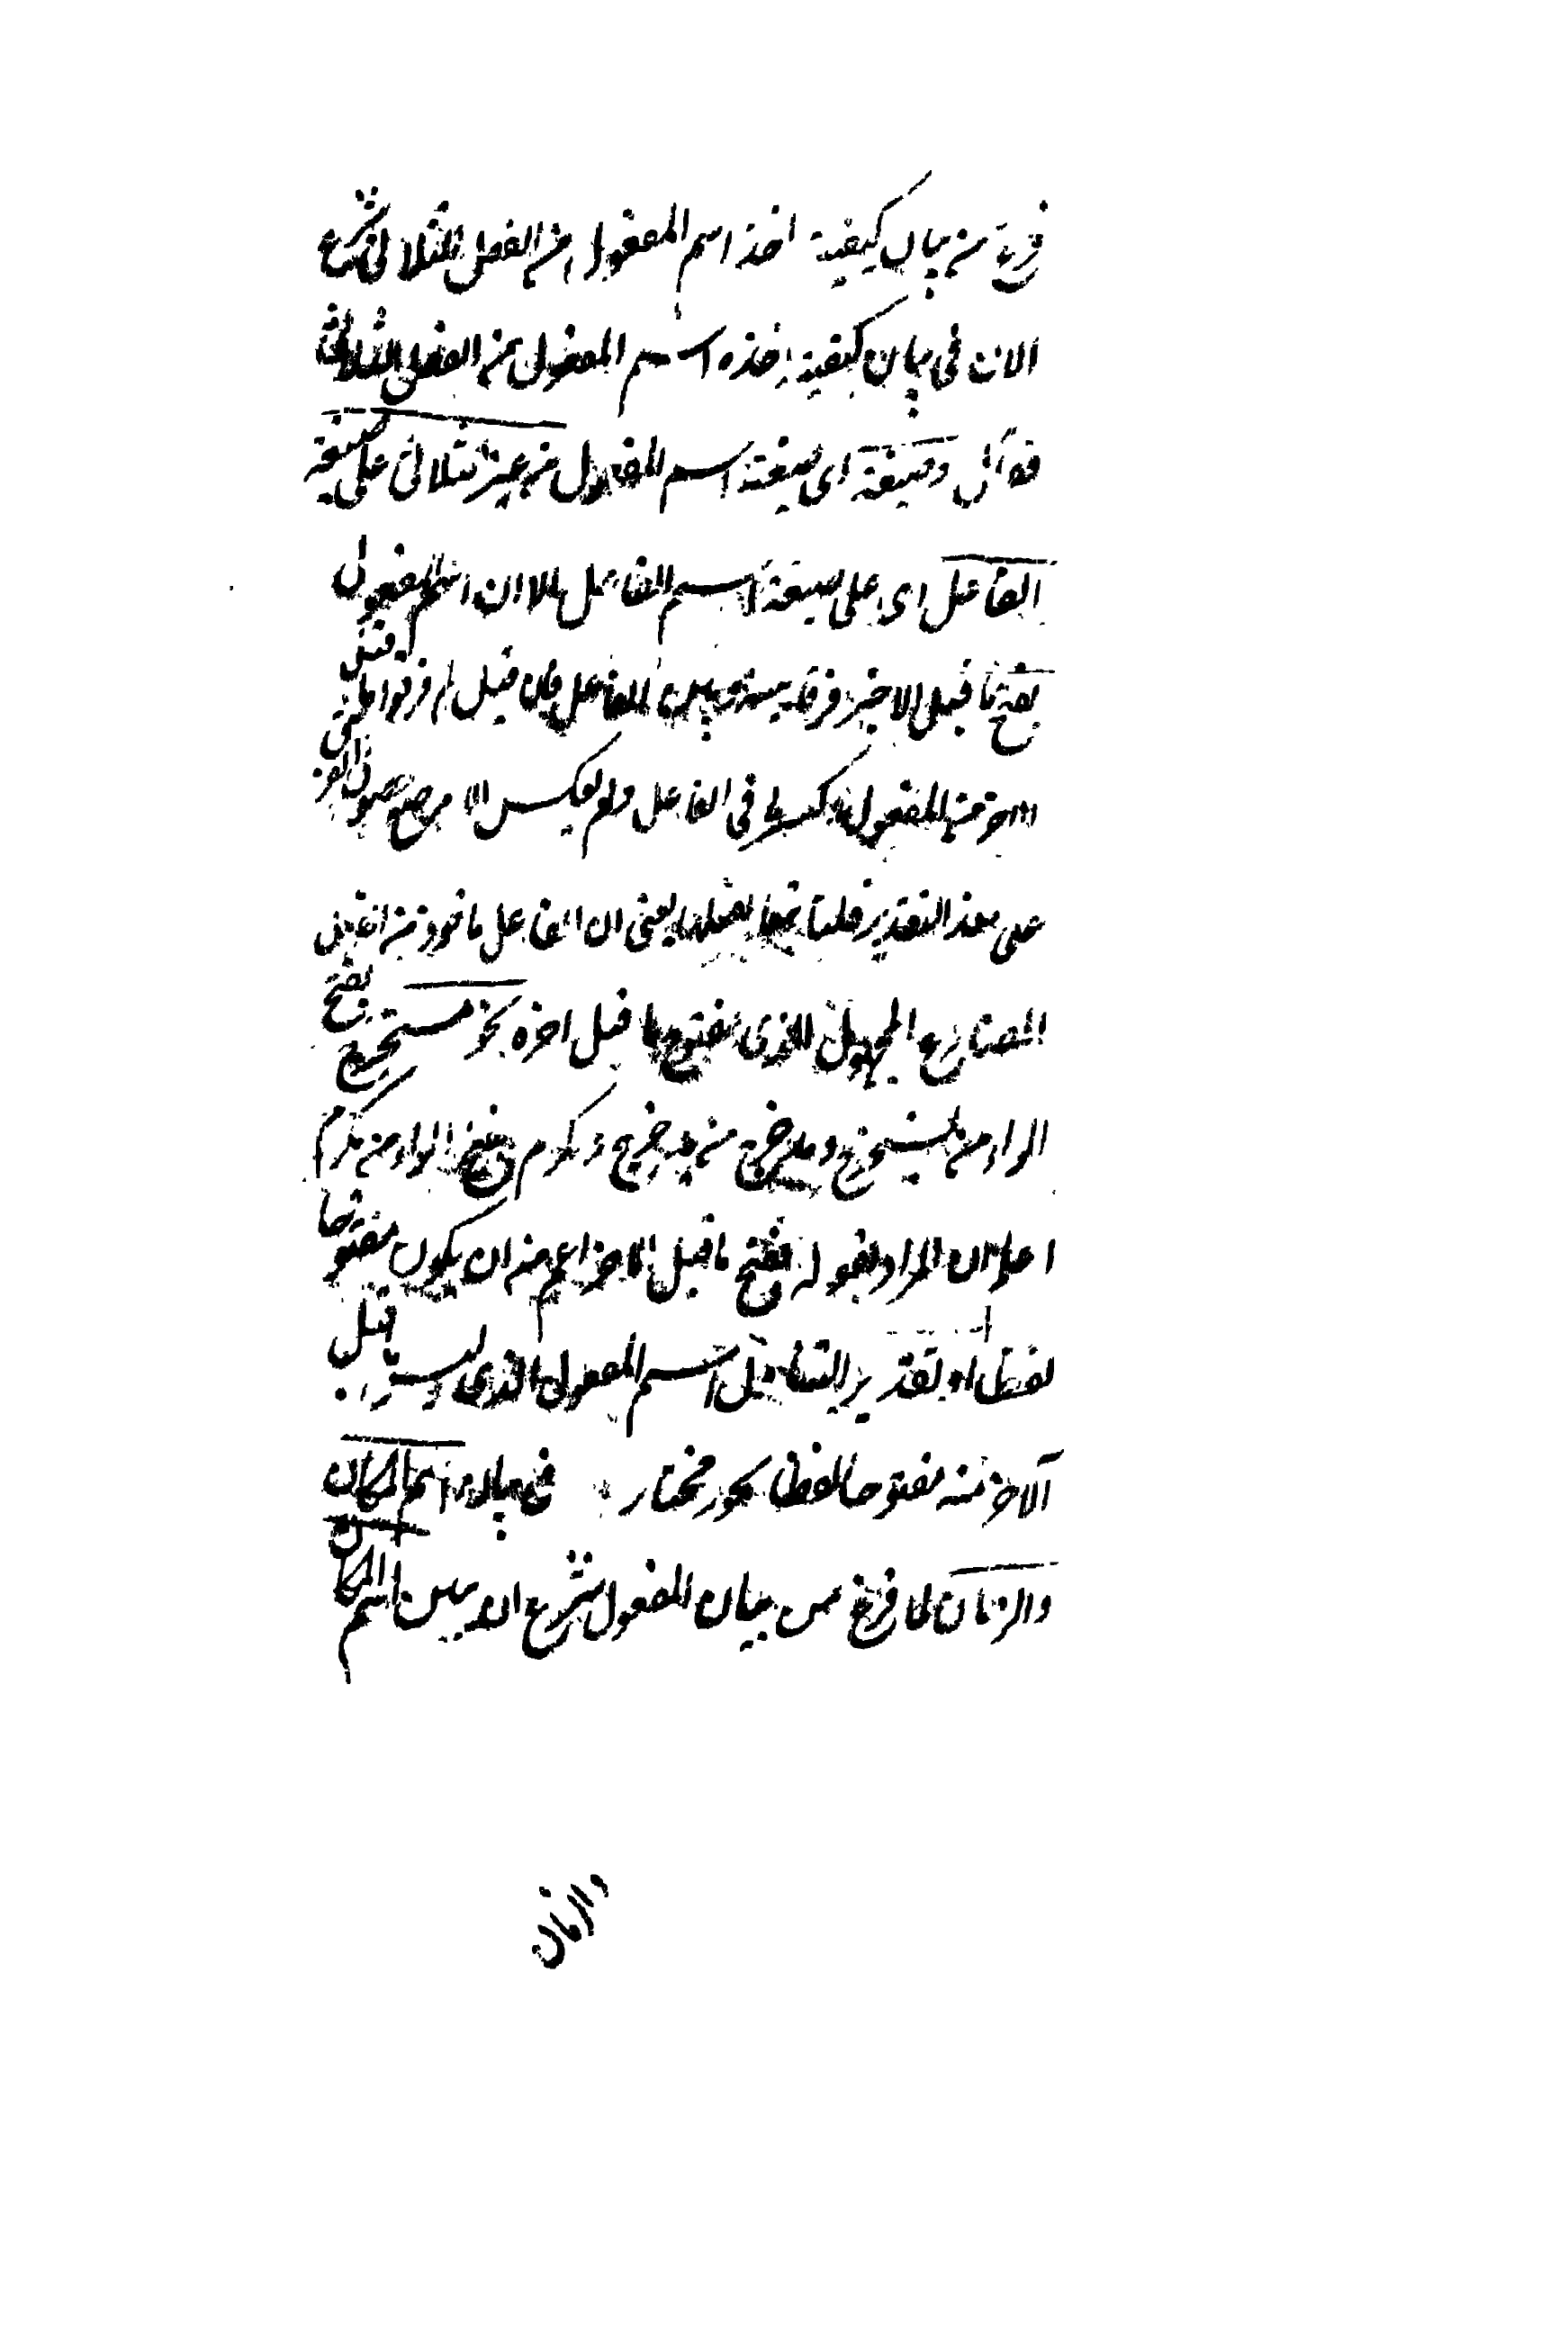 فرغ من بيان كيفية اخذ اسم المفعول من الفعل الثلاثى شرع
الان فى بيان كيفية اخذه اسم المفعول من الفعل الثلاثى
فقال وصيغة اى صيغة اسم المفعول من غير الثلاثى على صيغة
الفاعل اى على صيغة اسم الفاعل الا ان اسم المفعول
بفتح ما قبل الاخير فرقا بينه وبين الفاعل فان قيل لم فرقوا قبل
الاخر من المفعول وكسر فى الفاعل ولم يعكس الامر مع حصول الفرق
على هذا التقدير قلنا تبعا يعنى ان الفاعل ماخوذ من
المضارع المجهول الذى مفتوح ما قبل اخره نحو مستخرج بفتح
الراء من يستخرج ومدحرج من يدحرج ومكرم بفتح الراء من يكرم
اعلم ان المراد بقوله بفتح ما قبل الاخر اعم من ان يكون مفتوحا
لفظا او تقدير اليتناول اسم المفعول الذى ليس ما قبل
الاخر منه مفتوحا لفظا نحو مختار فى بيان اسم المكان
والزمان لما فرغ من بيان المفعول شرع ان يبين اسم المكان
والزمان